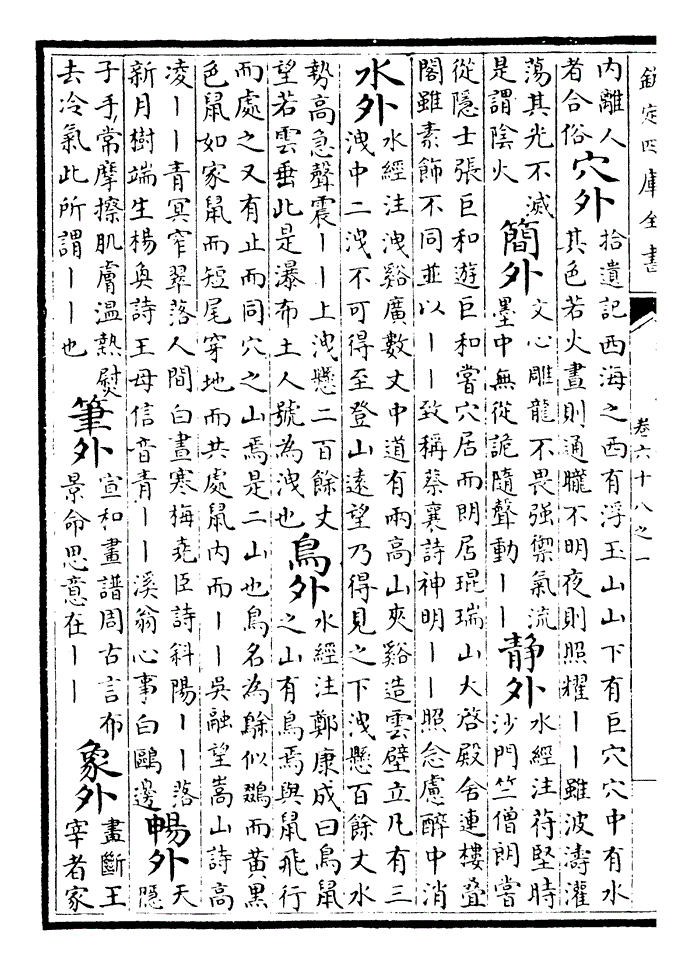 欽定四庫全書
卷六十八之一
内離人
者合俗
穴外
拾遺記西海之西有浮玉山山下有巨穴穴中有水
其色若火晝則通朧不明夜則照耀——雖波濤灌
蕩其光不滅
是謂隂火
簡外
文心雕龍不畏强禦氣流
墨中無從詭隨聲動——
静外
水經注苻堅時
沙門竺僧朗嘗
從隱士張巨和遊巨和嘗穴居而朗居琨瑞山大啓殿舍連樓疊
閣雖素飾不同並以——致稱蔡襄詩神明——照念慮醉中消
水外
水經注洩谿廣數丈中道有兩高山夾谿造雲壁立凡有三
洩中二洩不可得至登山遠望乃得見之下洩懸百餘丈水
勢高急聲震——上洩懸二百餘丈
望若雲垂此是瀑布土人號為洩也
鳥外
水經注鄭康成曰鳥鼠
之山有鳥焉與鼠飛行
而處之又有止而同穴之山焉是二山也鳥名為鵌似鵽而黄黑
色鼠如家鼠而短尾穿地而共處鼠内而——吳融望嵩山詩高
凌——青冥窄翠落人間白晝寒梅堯臣詩斜陽——落
新月樹端生楊奐詩王母信音青——溪翁心事白鷗邊
暢外
天
隱
子手常摩擦肌膚温熱熨
去冷氣此所謂——也
筆外
宣和畫譜周古言布
景命思意在——
象外
畫斷王
宰者家